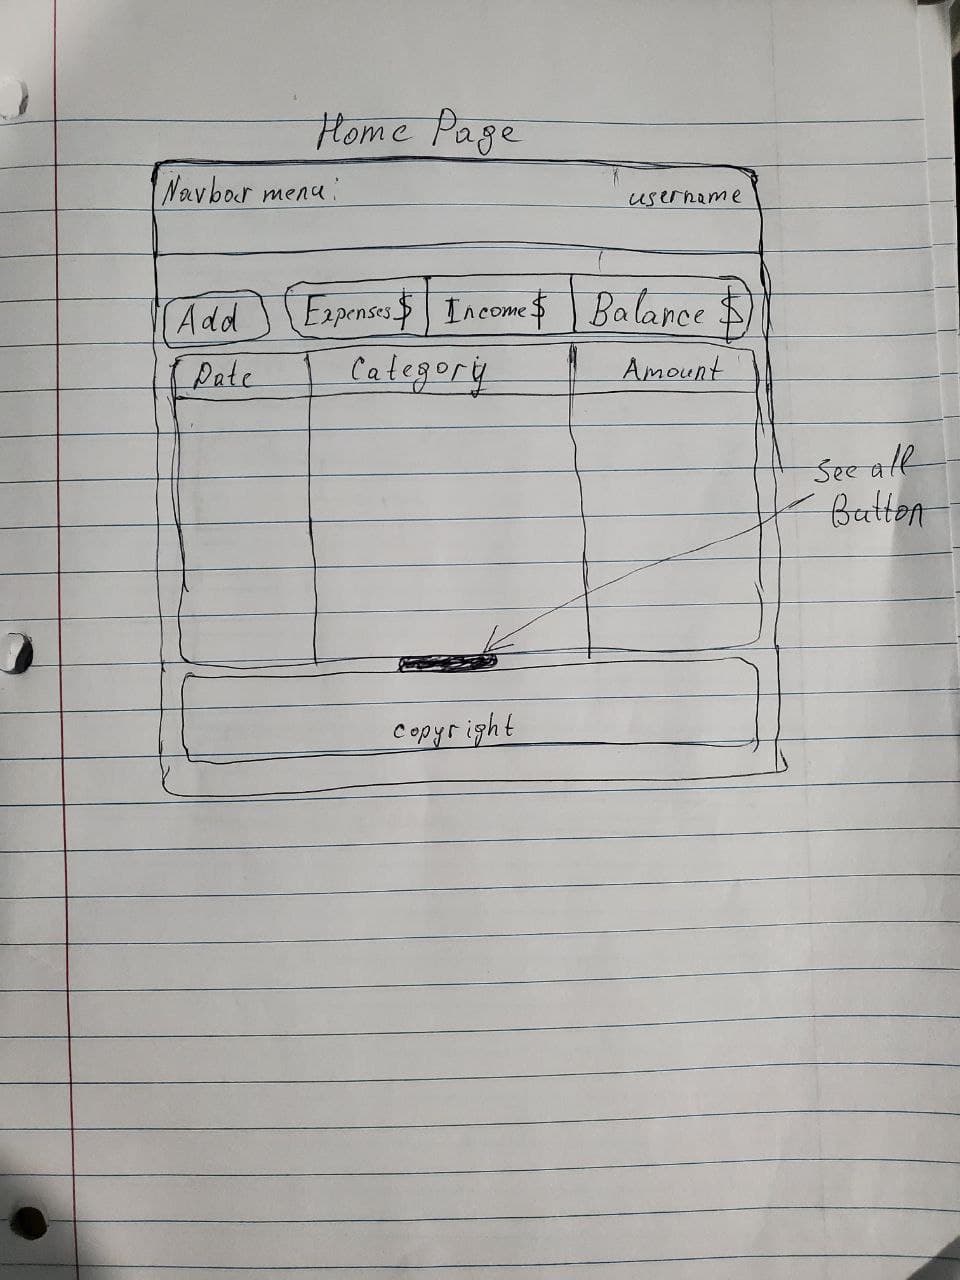 Home Page
Navbar menu: username
Add Expenses $ Income $ Balance $
Date Category Amount
See all
Button
copyright